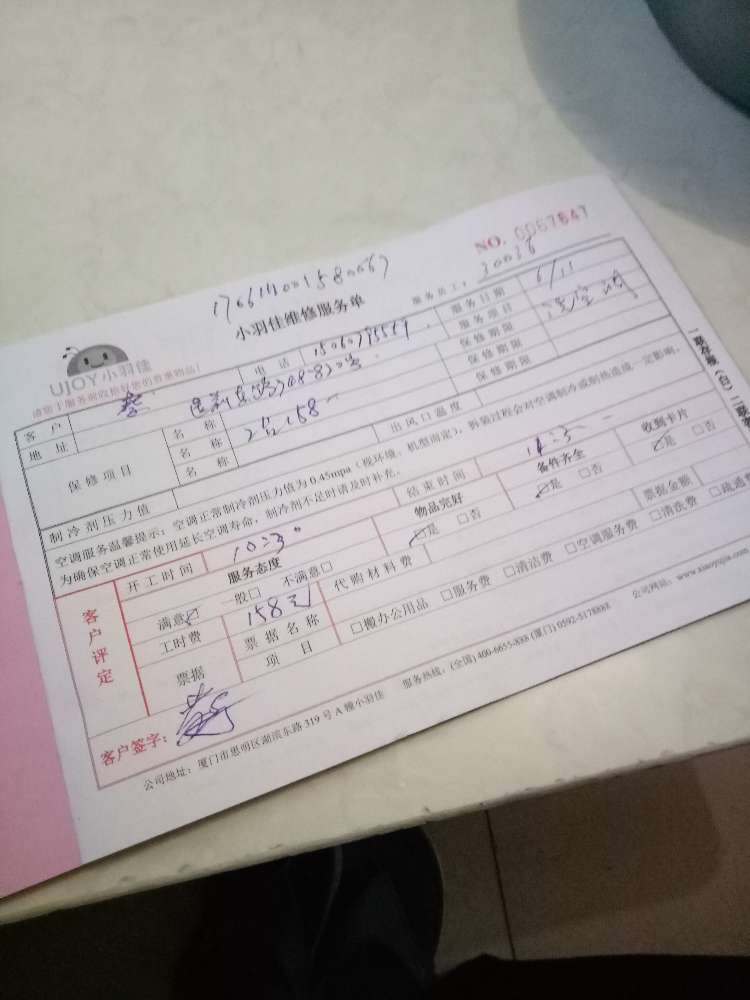 NO. 0057647
170614001580067
小羽佳维修服务单
服务员工： 30038
UJOY 小羽佳
客户 蔡 电话 服务日期 6/11
地址 服务项目 洗空调
保修项目 名称 2台158 保修期限
名称 保修期限
名称
制冷剂压力值 出风口温度
空调服务温馨提示：空调正常制冷剂压力值为0.45mpa（视环境、机型而定），拆装过程会对空调制冷或制热造成一定影响，
为确保空调正常使用延长空调寿命，制冷剂不足时请及时补充。
客户评定 开工时间 10:30 结束时间
服务态度 物品完好 备件齐全 收到卡片
满意☑ 一般□ 不满意□ ☑是 □否 ☑是 □否 ☑是 □否
工时费 158元 代购材料费 票据金额
票据 票据名称 □搬办公用品 □服务费 □清洁费 □空调服务费 □清洗费 □疏通费
项目
客户签字： 蔡
公司地址：厦门市思明区湖滨东路319号A幢小羽佳 服务热线：(全国) 400-6655-888 (厦门) 0592-5178888 公司网站：www.xiaoyujia.com
一联存根（白）二联